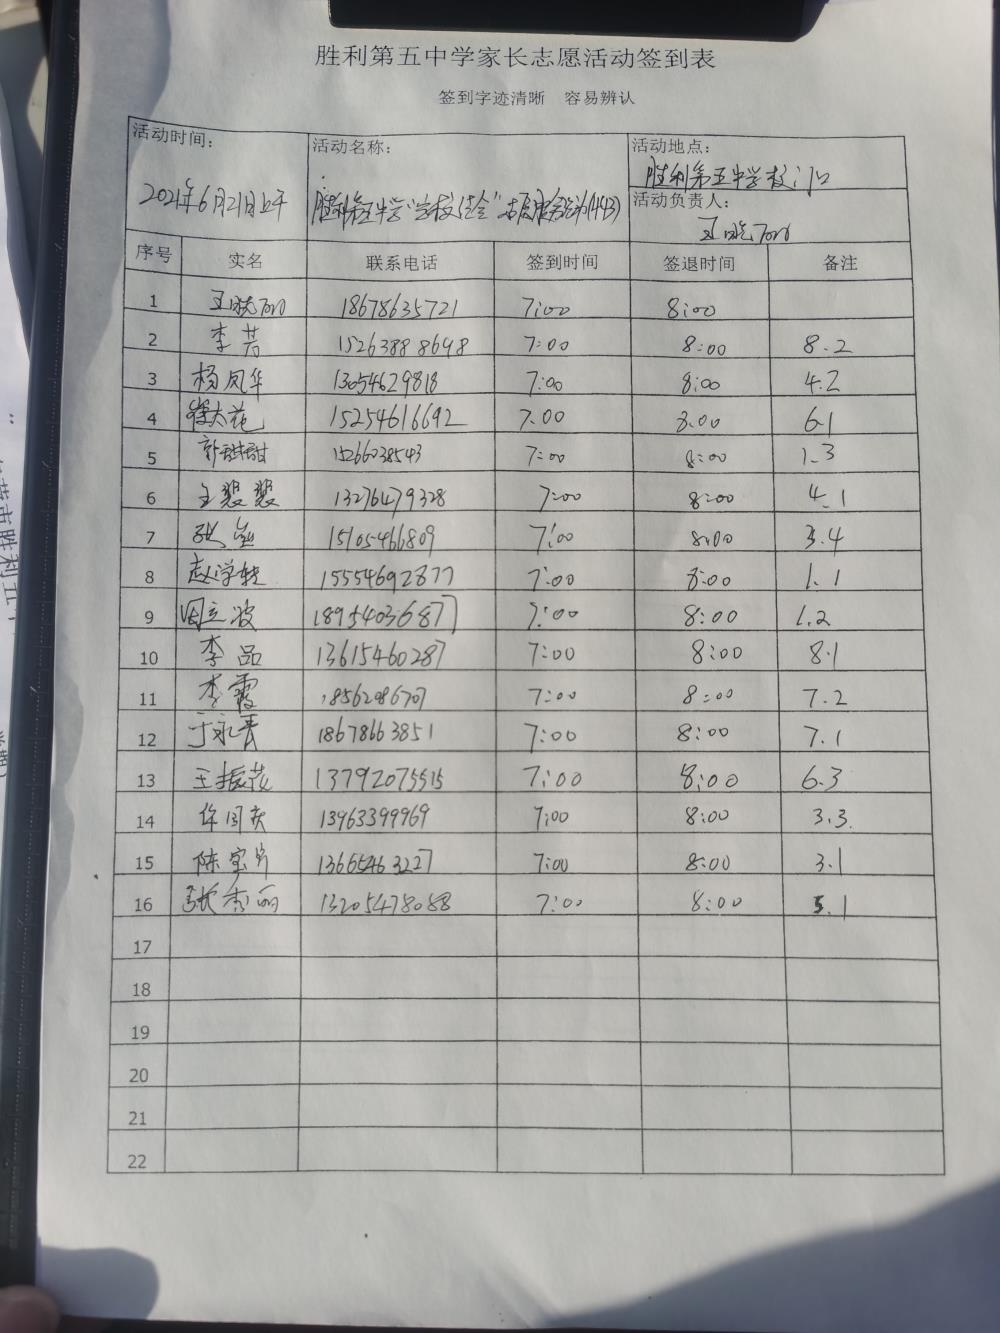 胜利第五中学家长志愿活动签到表
签到字迹清晰 容易辨认
活动时间：
2021年6月21日上午
活动名称：
胜利第五中学"学校 " 志愿服务活动(1493)
活动地点：
胜利第五中学校门口
活动负责人：
王晓
序号 实名 联系电话 签到时间 签退时间 备注
1 王晓 18678635721 7:00 8:00
2 李芳 15263888698 7:00 8:00 8.2
3 杨凤华 13054629818 7:00 8:00 4.2
4 15254616692 7:00 8:00 6.1
5 郭甜甜 15266038543 7:00 8:00 1.3
6 王裴裴 13276479328 7:00 8:00 4.1
7 15105466809 7:00 8:00 3.4
8 赵学 15554692877 7:00 8:00 1.1
9 周立波 18954036877 7:00 8:00 1.2
10 李品 13615460287 7:00 8:00 8.1
11 李霞 18562986707 7:00 8:00 7.2
12 于永青 18678663851 7:00 8:00 7.1
13 王振花 13792075515 7:00 8:00 6.3
14 13963399969 7:00 8:00 3.3
15 陈宝 13665463227 7:00 8:00 3.1
16 张秀丽 13205478088 7:00 8:00 5.1
17
18
19
20
21
22